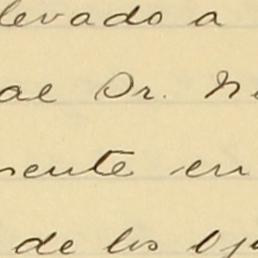 levado a
al Dr. N
mente en
de los Oj